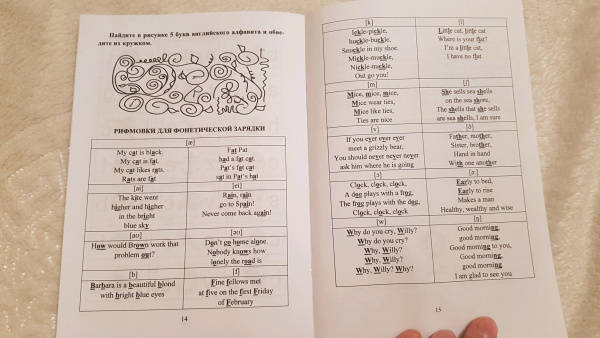 Найдите в рисунке 5 букв английского алфавита и обве-
дите их кружком.
РИФМОВКИ ДЛЯ ФОНЕТИЧЕСКОЙ ЗАРЯДКИ
[æ]
My cat is black.
My cat is fat.
My cat likes rats.
Rats are fat
Fat Pat
had a fat cat.
Pat's fat cat
sat in Pat's hat
[ai]
The kite went
higher and higher
in the bright
blue sky
[ei]
Rain, rain
go to Spain!
Never come back again!
[aʊ]
How would Brown work that
problem out?
[əʊ]
Don't go home alone.
Nobody knows how
lonely the road is
[b]
Barbara is a beautiful blond
with bright blue eyes
[f]
Fine fellows met
at five on the first Friday
of February
14
[k]
Ickle-pickle,
huckle-buckle,
Snuckle in my shoe.
Mickle-muckle,
Nickle-nuckle,
Out go you!
[l]
Little cat, little cat
Where is your flat?
I'm a little cat,
I have no flat
[m]
Mice, mice, mice,
Mice wear ties,
Mice like ties,
Ties are nice
[ʃ]
She sells sea shells
on the sea shore,
The shells that she sells
are sea shells, I am sure
[v]
If you ever ever ever
meet a grizzly bear,
You should never never never
ask him where he is going
[ð]
Father, mother,
Sister, brother,
Hand in hand
With one another
[ɔ]
Clock, clock, clock,
A dog plays with a frog,
The frog plays with the dog,
Clock, clock, clock
[ə:]
Early to bed,
Early to rise
Makes a man
Healthy, wealthy and wise
[w]
Why do you cry, Willy?
Why do you cry?
Why, Willy?
Why, Willy?
Why, Willy? Why?
[ŋ]
Good morning,
good morning,
Good morning to you,
Good morning,
good morning
I am glad to see you
15